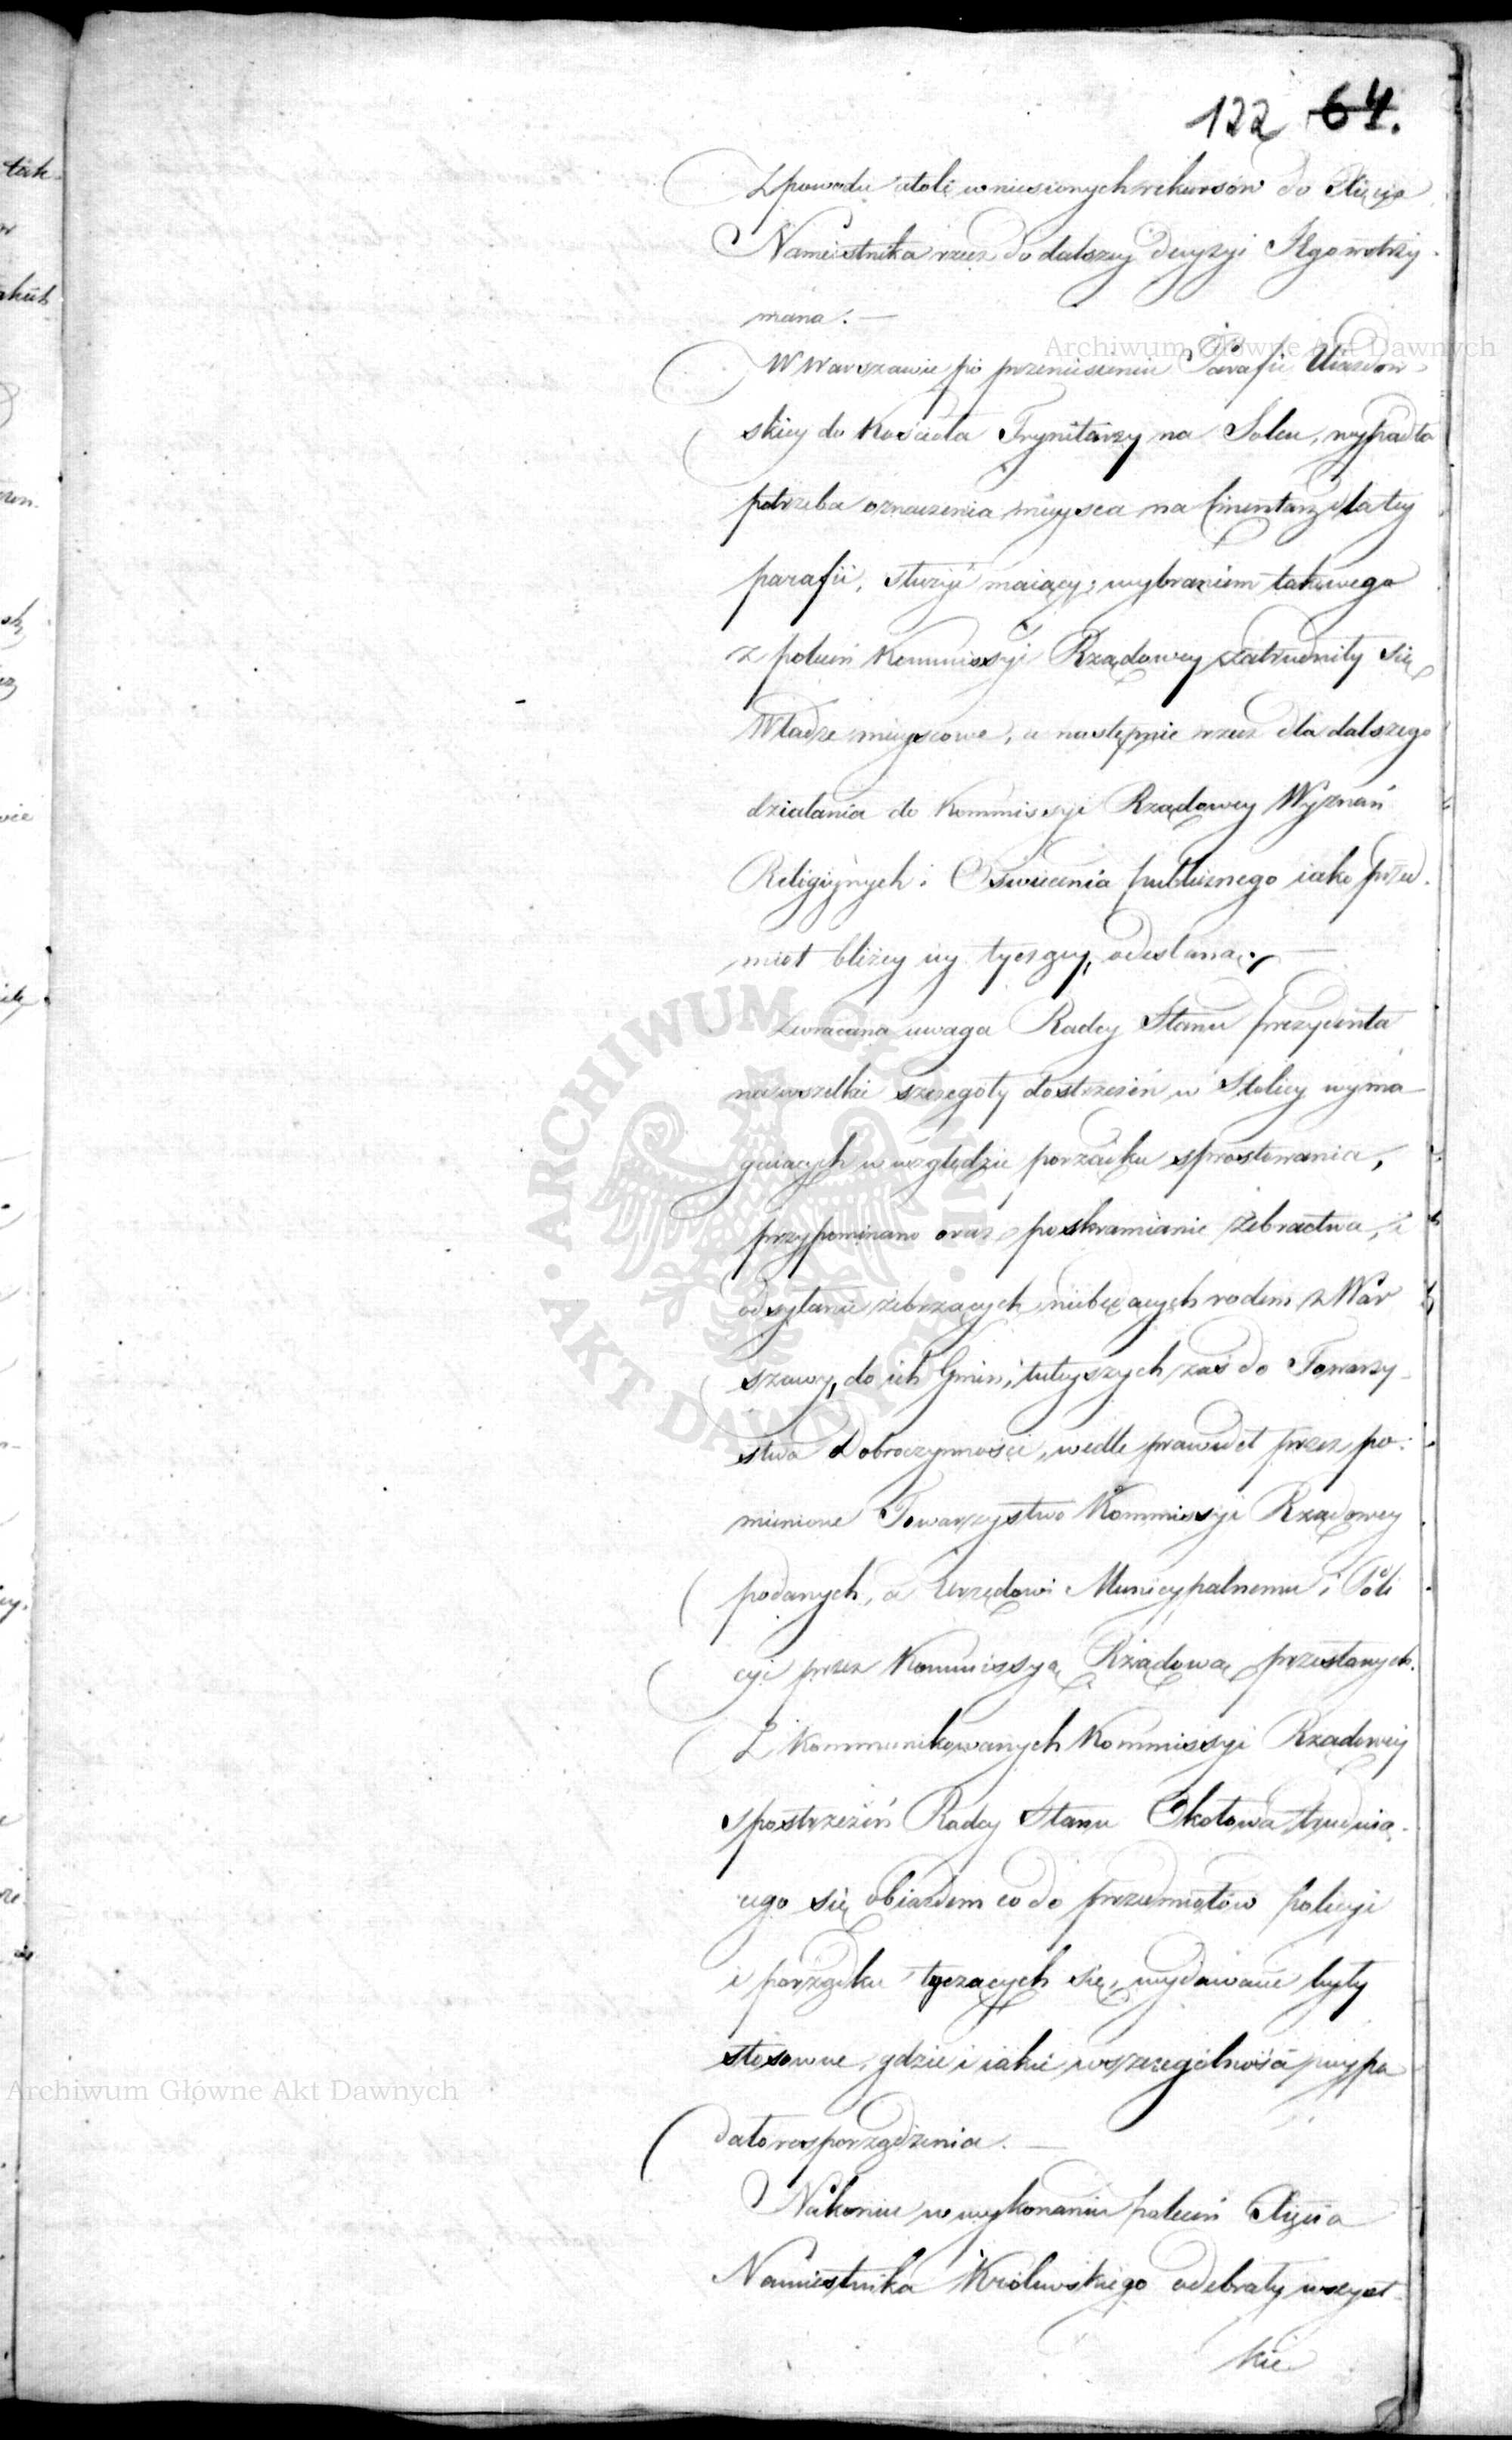 122 64.
Z powodu atoli wniesionych rekursów do Xięcia
Namiestnika rzecz do dalszey decyzyi Jego wstrzy-
mana. —
W Warszawie po przeniesieniu Parafii Uiazdow-
skiey do Kościoła Trynitarzy na Solcu, wypadła
potrzeba oznaczenia mieysca na Cmentarz dla tey
parafii, służyć maiący; wybraniem takowego
z poleceń Kommissyi Rządowey zatrudniły się
Władze mieyscowe, a następnie rzecz dla dalszego
działania do Kommissyi Rządowey Wyznań
Religiynych i Oświecenia publicznego iako przed-
miot bliżey iey tyczący, odesłana. —
Zwracana uwaga Radcy Stanu prezydenta
na wszelkie szczegóły dostrzeżeń w Stolicy wyma-
gaiących w względzie porządku sprostowania,
przypominano oraz poskramianie żebractwa, i
odsyłanie żebrzących niebędących rodem z War
szawy, do ich Gmin, tuteyszych zaś do Towarzy-
stwa Dobroczynności, wedle prawideł przez po-
mienione Towarzystwo Kommissyi Rządowey
podanych, a Urzędowi Municypalnemu i Poli
cyi przez Kommissyą Rządową przesłanych.
Z kommunikowanych Kommissyi Rządowey
spostrzeżeń Radcy Stanu Okołowa trudnią-
cego się obiazdem co do przedmiotów policyi
i porządku tyczących się, wydawane były
stosowne, gdzie i iakie w szczególności przypa
dało rozporządzenia. —
Nakoniec w wykonaniu poleceń Xięcia
Namiestnika Królewskiego odebrały wszyst-
kie
Archiwum Główne Akt Dawnych
Archiwum Główne Akt Dawnych
ARCHIWUM GŁÓWNE AKT DAWNYCH